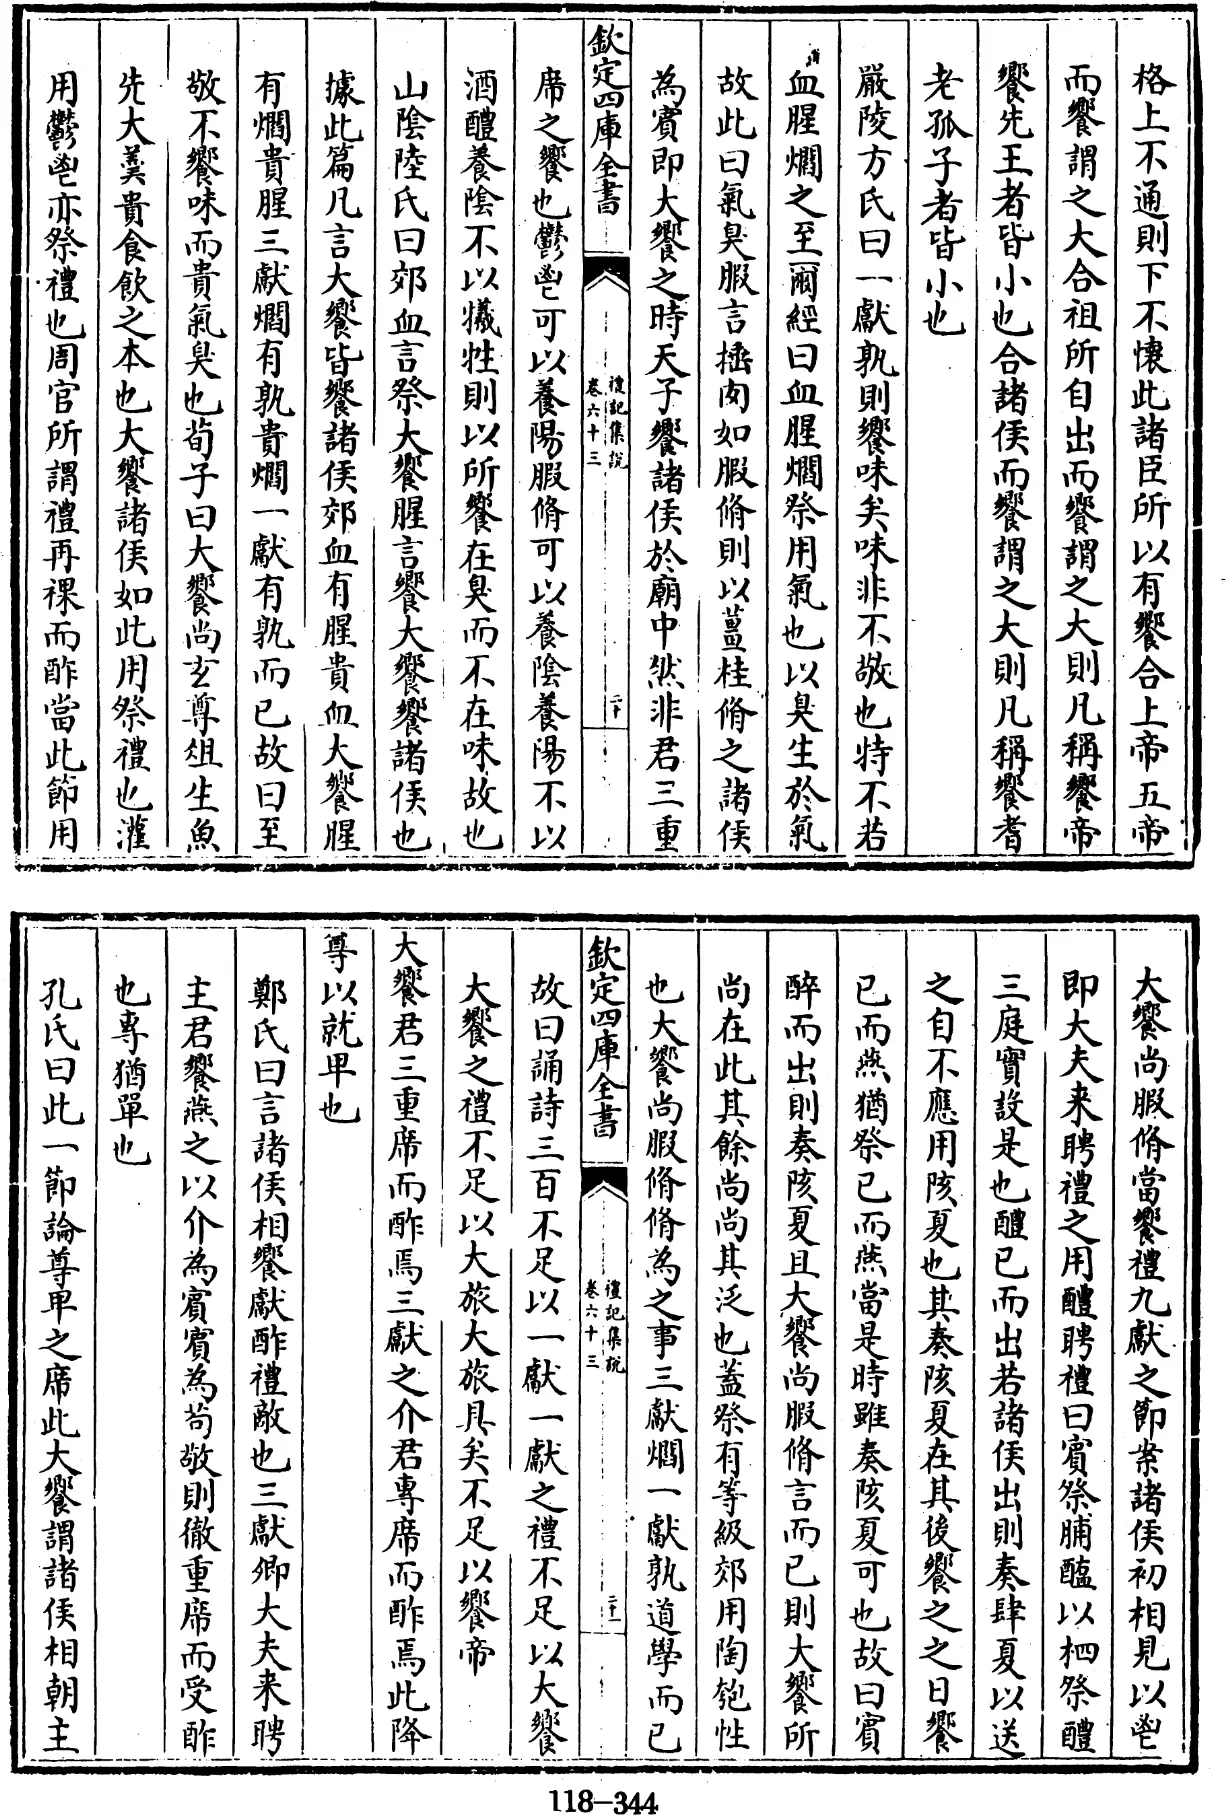 格上不通則下不懷此諸臣所以有饗合上帝五帝
而饗謂之大合祖所自出而饗謂之大則凡稱饗帝
饗先王者皆小也合諸侯而饗謂之大則凡稱饗耆
老孤子者皆小也
嚴陵方氏曰一獻孰則饗味矣味非不敬也特不若
血腥爓之至爾經曰血腥爓祭用氣也以臭生於氣
故此曰氣臭腶言捶肉如腶脩則以薑桂脩之諸侯
為賓即大饗之時天子饗諸侯於廟中然非君三重
欽定四庫全書
禮記集說
卷六十三
二十
席之饗也鬱鬯可以養陽腶脩可以養陰養陽不以
酒醴養陰不以犧牲則以所饗在臭而不在味故也
山陰陸氏曰郊血言祭大饗腥言饗大饗饗諸侯也
據此篇凡言大饗皆饗諸侯郊血有腥貴血大饗腥
有爓貴腥三獻爓有孰貴爓一獻有孰而已故曰至
敬不饗味而貴氣臭也荀子曰大饗尚玄尊俎生魚
先大羹貴食飲之本也大饗諸侯如此用祭禮也灌
用鬱鬯亦祭禮也周官所謂禮再祼而酢當此節用
大饗尚腶脩當饗禮九獻之節案諸侯初相見以鬯
即大夫来聘禮之用醴聘禮曰賓祭脯醢以柶祭醴
三庭實設是也醴已而出若諸侯出則奏肆夏以送
之自不應用陔夏也其奏陔夏在其後饗之之日饗
已而燕猶祭已而燕當是時雖奏陔夏可也故曰賓
醉而出則奏陔夏且大饗尚腶脩言而已則大饗所
尚在此其餘尚尚其泛也蓋祭有等級郊用陶匏性
也大饗尚腶脩脩為之事三獻爓一獻孰道學而已
欽定四庫全書
禮記集說
卷六十三
二十一
故曰誦詩三百不足以一獻一獻之禮不足以大饗
大饗之禮不足以大旅大旅具矣不足以饗帝
大饗君三重席而酢焉三獻之介君專席而酢焉此降
尊以就卑也
鄭氏曰言諸侯相饗獻酢禮敵也三獻卿大夫来聘
主君饗燕之以介為賓賓為苟敬則徹重席而受酢
也專猶單也
孔氏曰此一節論尊卑之席此大饗謂諸侯相朝主
118-344